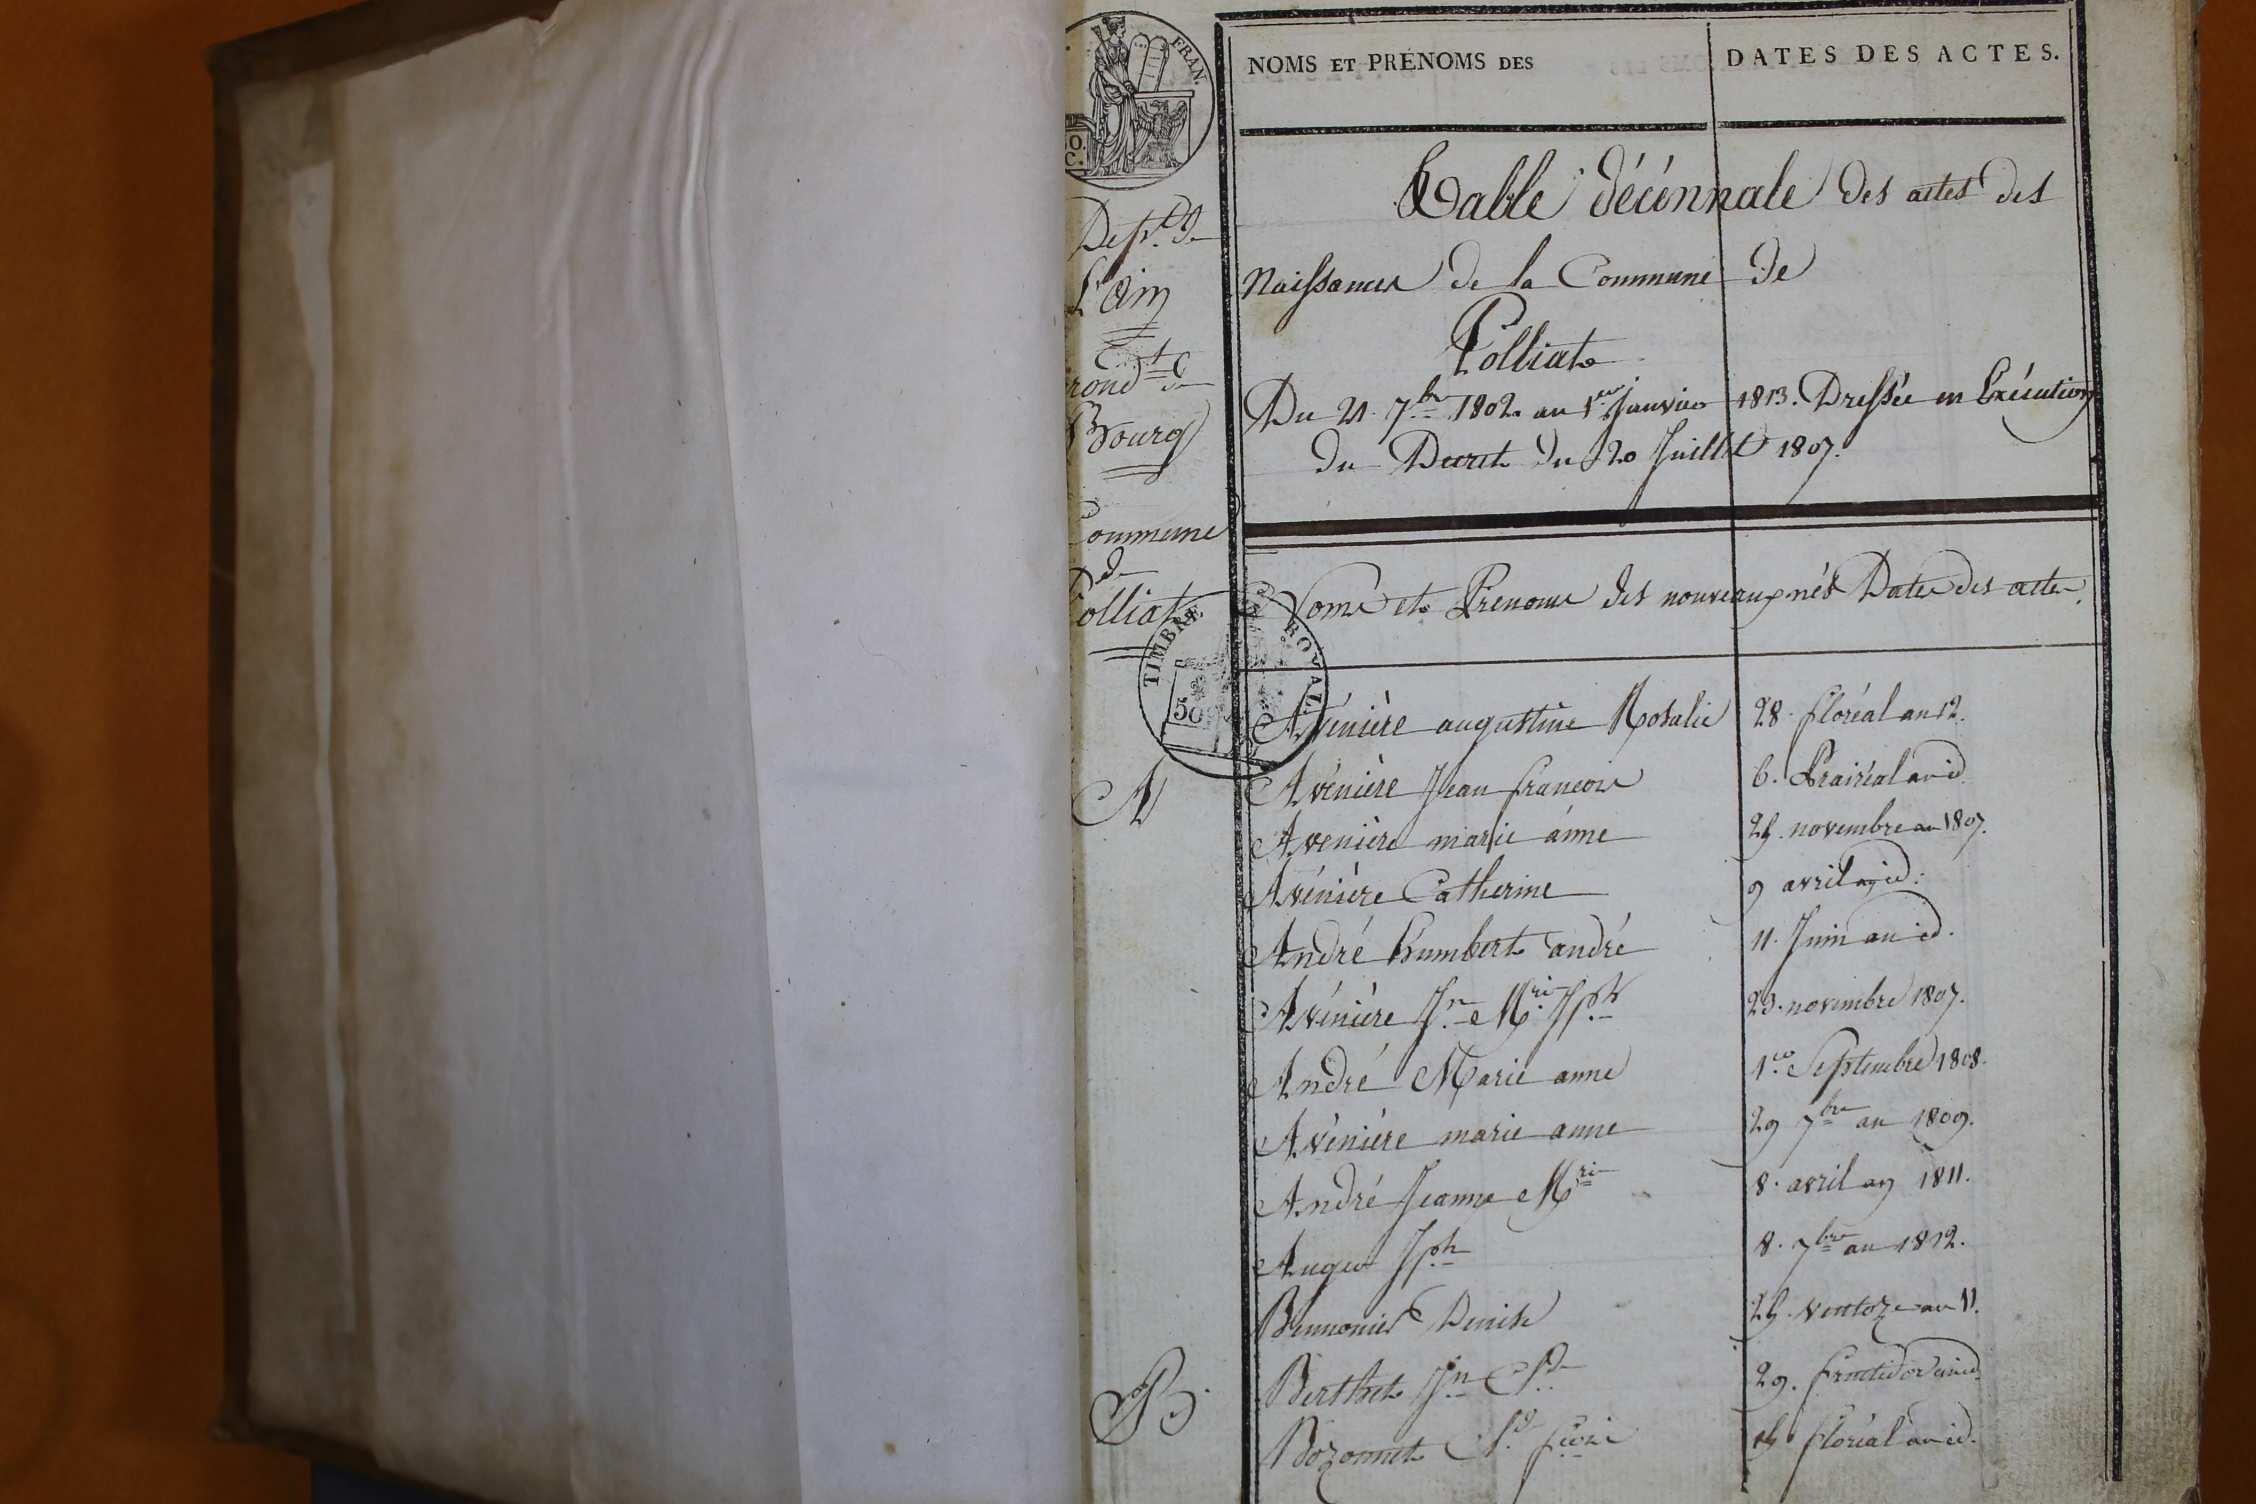 FRAN.
50.
C.
NOMS ET PRÉNOMS DES
DATES DES ACTES.
Dept. de
L'ain
rond.t de
Bourg
Commune
de
Polliat
Table décénnale des actes des
Naissances de la Commune de
Polliat
Du 21. 7.bre 1802 au 1.er Janvier 1813. Dressée en Exécution
du Decret du 20 Juillet 1807.
Noms et Prenoms des nouveaux nés Dates des actes.
TIMBRE ROYAL.
50
A
Avénière augustine Rosalie 28. floréal an 12.
Avénière Jean françois 6. Prairéal an id
Avenière marie anne 25. novembre an 1807.
Avénière Catherine 9 avril an id.
André humbert andré 11. Juin an id.
Avénière J.n M.rie Jph 23. novembre 1807.
André Marie anne 1.er Septembre 1808.
Avénière marie anne 29 7bre an 1809.
André Jeanne M.rie 8. avril an 1811.
Auger Jph 8. 7bre an 1812.
Denise 25. ventoze an 11.
B.
Berthet J.n 29. fructidor an id.
Bozonnet floréal an id.